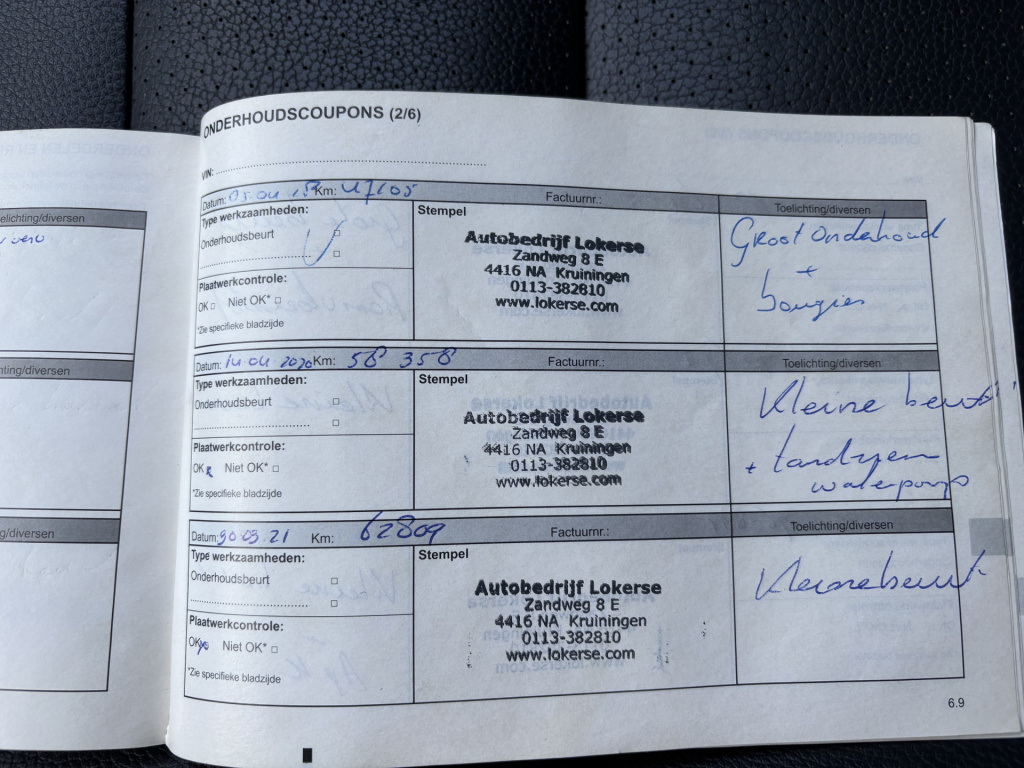 ONDERHOUDSCOUPONS (2/6)
VIN:
Datum: 05 04 Km: 47105 Factuurnr.: Toelichting/diversen
Type werkzaamheden:
Onderhoudsbeurt
Stempel
Autobedrijf Lokerse
Zandweg 8 E
4416 NA Kruiningen
0113-382810
www.lokerse.com
Groot onderhoud
+
bougies
Plaatwerkcontrole:
OK Niet OK*
*Zie specifieke bladzijde
Datum: 14 04 2020 Km: 58 358 Factuurnr.: Toelichting/diversen
Type werkzaamheden:
Onderhoudsbeurt
Stempel
Autobedrijf Lokerse
Zandweg 8 E
4416 NA Kruiningen
0113-382810
www.lokerse.com
Kleine beurt
+ tandriem
waterpomp
Plaatwerkcontrole:
OK Niet OK*
*Zie specifieke bladzijde
Datum: 30 03.21 Km: 62809 Factuurnr.: Toelichting/diversen
Type werkzaamheden:
Onderhoudsbeurt
Stempel
Autobedrijf Lokerse
Zandweg 8 E
4416 NA Kruiningen
0113-382810
www.lokerse.com
Kleine beurt
Plaatwerkcontrole:
OK Niet OK*
*Zie specifieke bladzijde
6.9